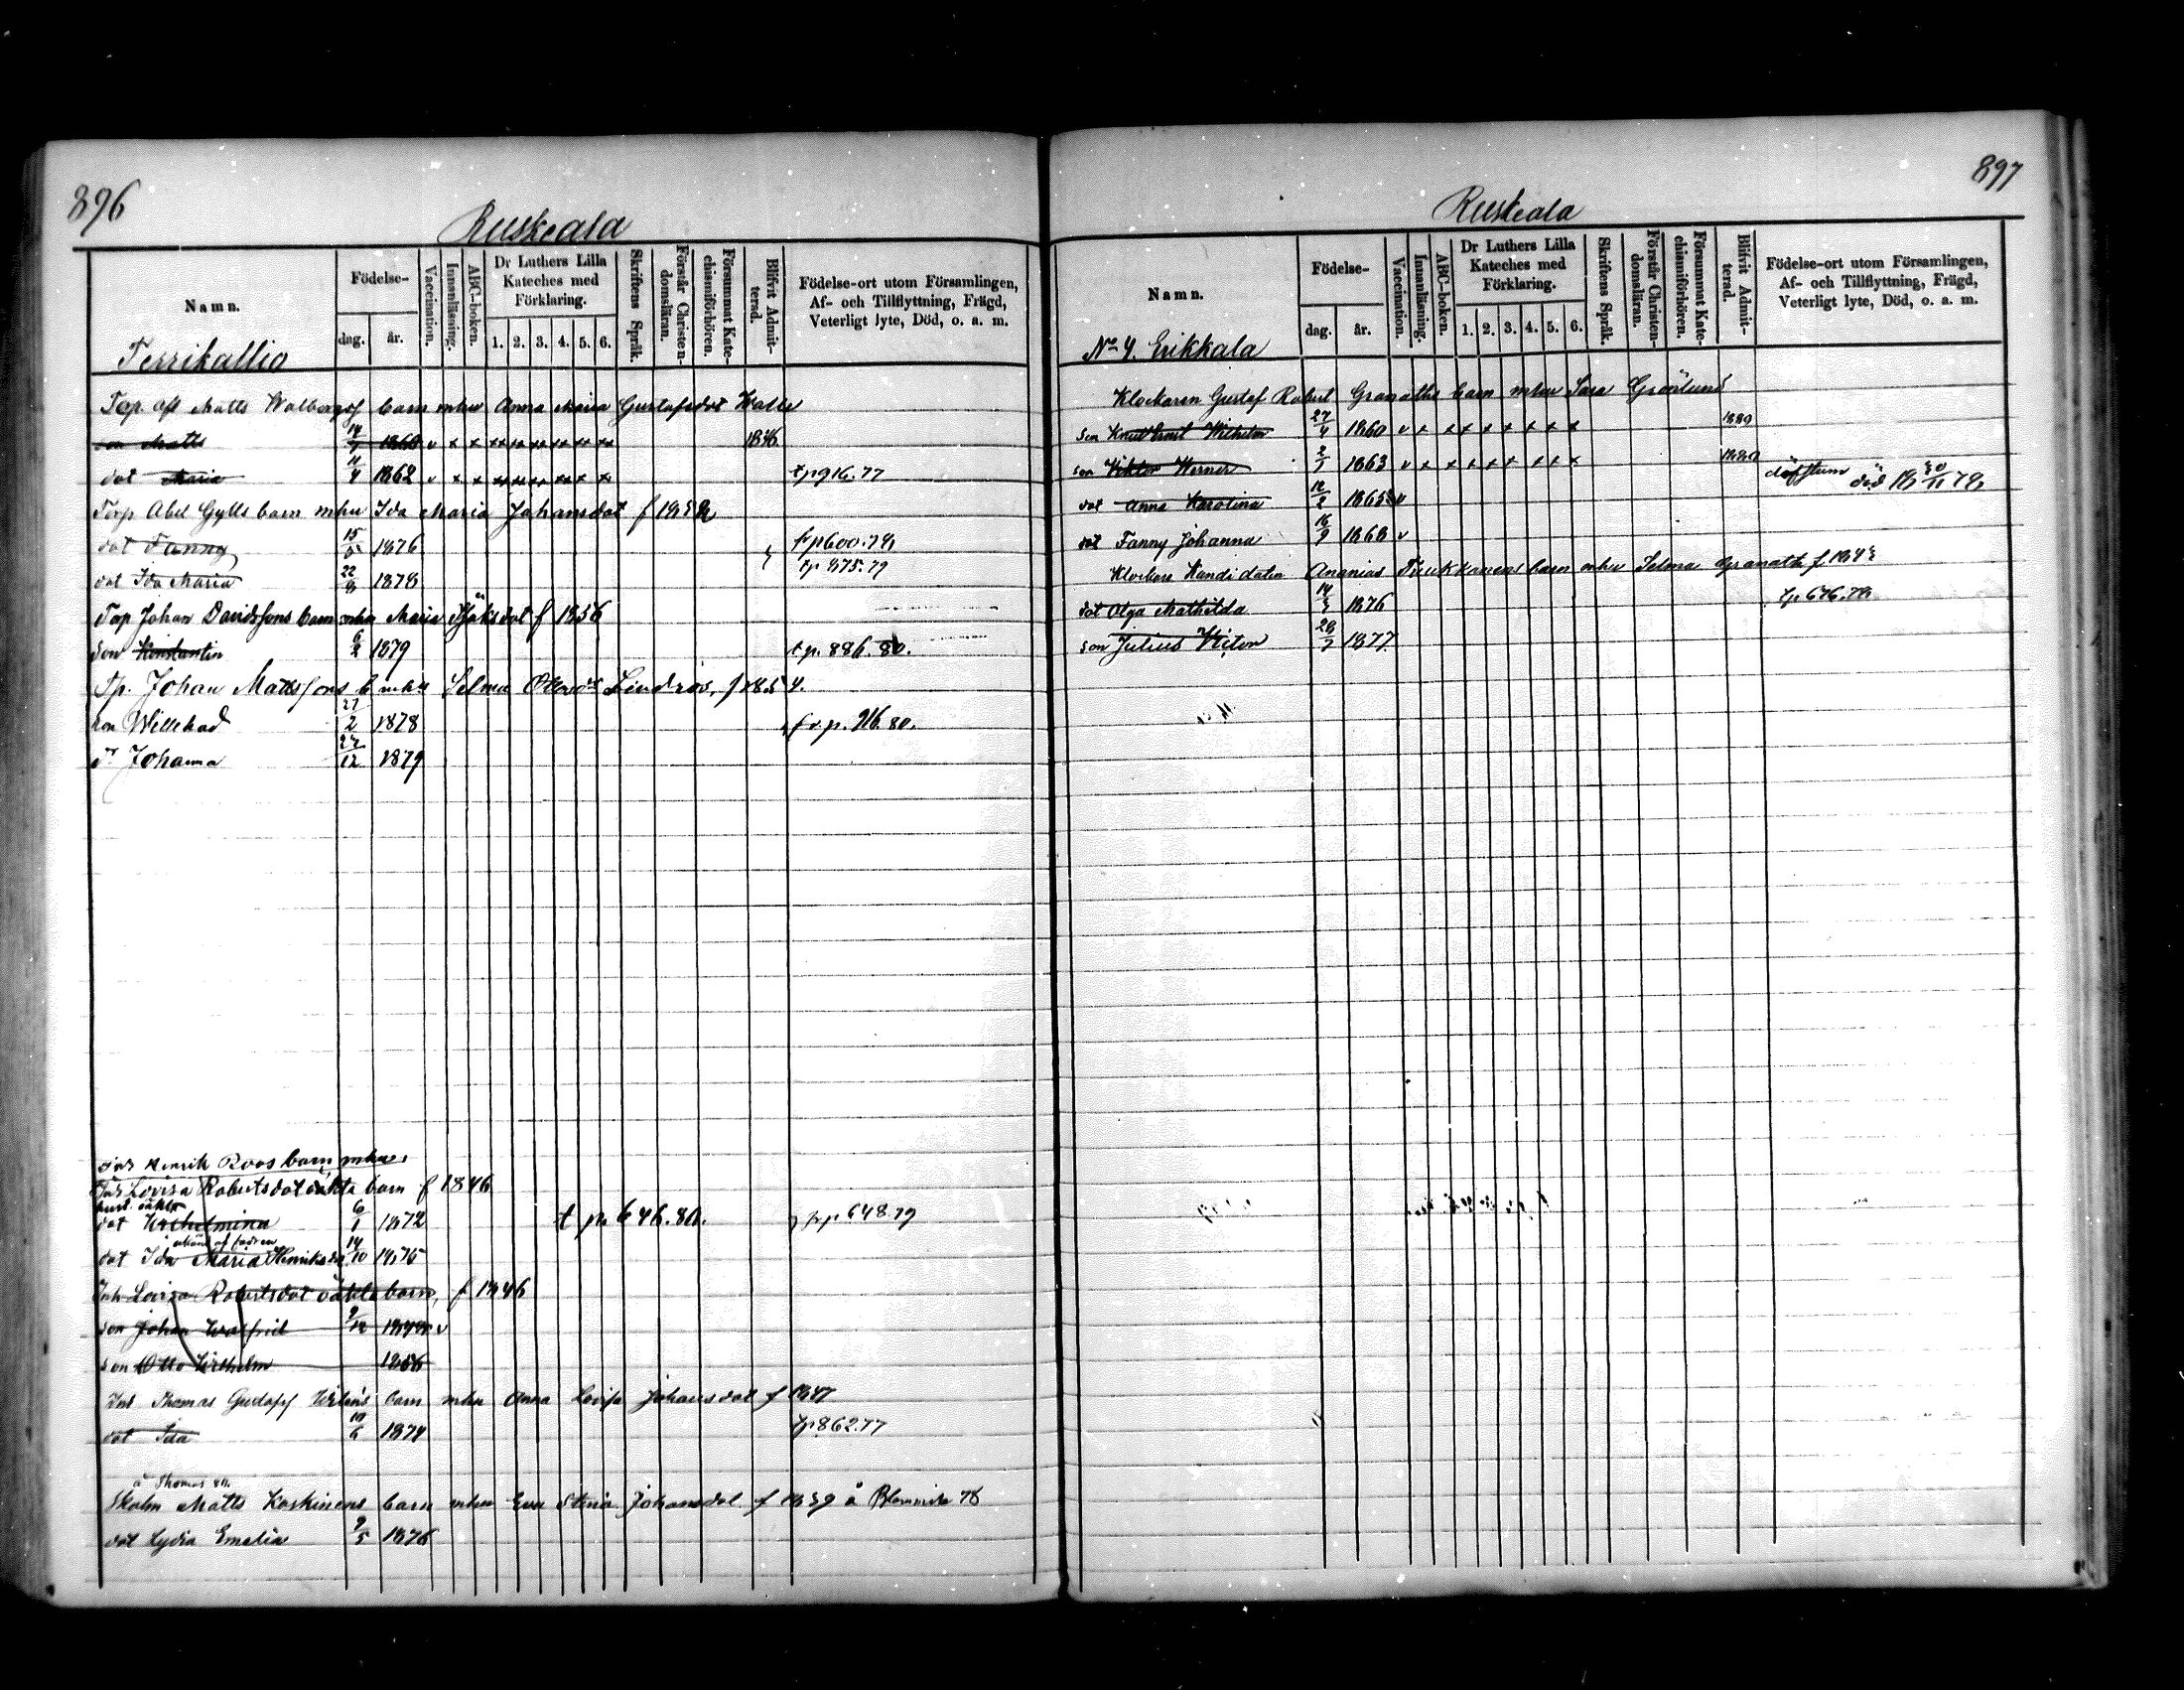 896
Ruskeala
Namn.
Födelse-
dag.
år.
Vaccination.
Innanläsning.
ABC-boken.
Dr Luthers Lilla
Kateches med
Förklaring.
1. 2. 3. 4. 5. 6.
Skriftens Språk.
Förstår Christen-
domsläran.
Försummat Kate-
chismiförhören.
Blifvit Admit-
terad.
Födelse-ort utom Församlingen,
Af- och Tillflyttning, Frägd,
Veterligt lyte, Död, o. a. m.
Terrikallio
Torp. Matts barn mhu Anna Maria Gustafsdot
son Matts 1860 v x x x x x x x x
dot Maria 11/4 1862 v x x x x x x x x tp 916.77
Torp Abel Gylls barn mhu Ida Maria Johansdot f 1852
dot Fanny 15/5 1876 frp 600.78
dot Ida Maria 22/8 1878 tp 875.79
Torp Johan Davidssons barn mhu Maria f 1856
son Konstantin 6/2 1879 tp. 886.80.
Tp. Johan Mattssons b mhu Selma Lindroos, f 1854.
son Willehad 27/2 1878 frp. 916.80.
dr Johanna 27/12 1879
Henrik Roos barn mhu
Lovisa Robertsdot oäkta barn f 1846
oäkta
dot Wilhelmina 6/1 1872 t pa 646.80. frp. 648.79
af fadren
dot Ida Maria Henriksdr 14/10 1875
Inh Lovisa Robertsdot oäkta barn, f 1846
son Johan Walfrid 9/12 v
son Otto Wilhelm
Inh Thomas Gustafss barn mhu Anna Lovisa Johansdot f 1847
dot Ida 10/6 1874 tp 862.77
å Thomas 80.
Skolm Matts Koskinens barn mhu Eva Stina Johansdot f 1839 å 78
dot Lydia Emelia 9/5 1876
897
Ruskeala
Namn.
Födelse-
dag.
år.
Vaccination.
Innanläsning.
ABC-boken.
Dr Luthers Lilla
Kateches med
Förklaring.
1. 2. 3. 4. 5. 6.
Skriftens Språk.
Förstår Christen-
domsläran.
Försummat Kate-
chismiförhören.
Blifvit Admit-
terad.
Födelse-ort utom Församlingen,
Af- och Tillflyttning, Frägd,
Veterligt lyte, Död, o. a. m.
No 4. Erikkala
Klockaren Gustaf Robert Granaths barn mhu Sara Grönlund
son Knut Ernst Wilhelm 27/4 1860 v x x x x x x x x 1880
son Viktor Werner 1863 v x x x x x x x x 1880
dot Anna Karolina 12/2 1865 v döfstum död 30/11 78
dot Fanny Johanna 16/9 1868 v
Klockare Kandidaten Ananias barn mhu Selma Granath
dot Olga Mathilda 1876 tp 676.78
son Julius Victor 28/7 1877